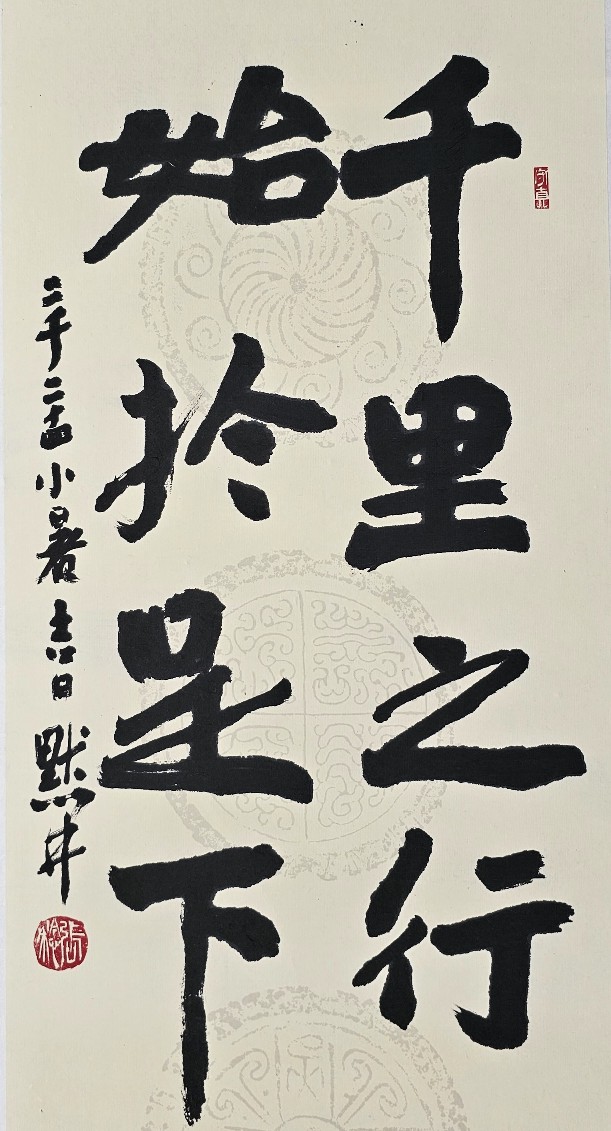 千里之行
始於足下
二千二十四小暑吉日 默井